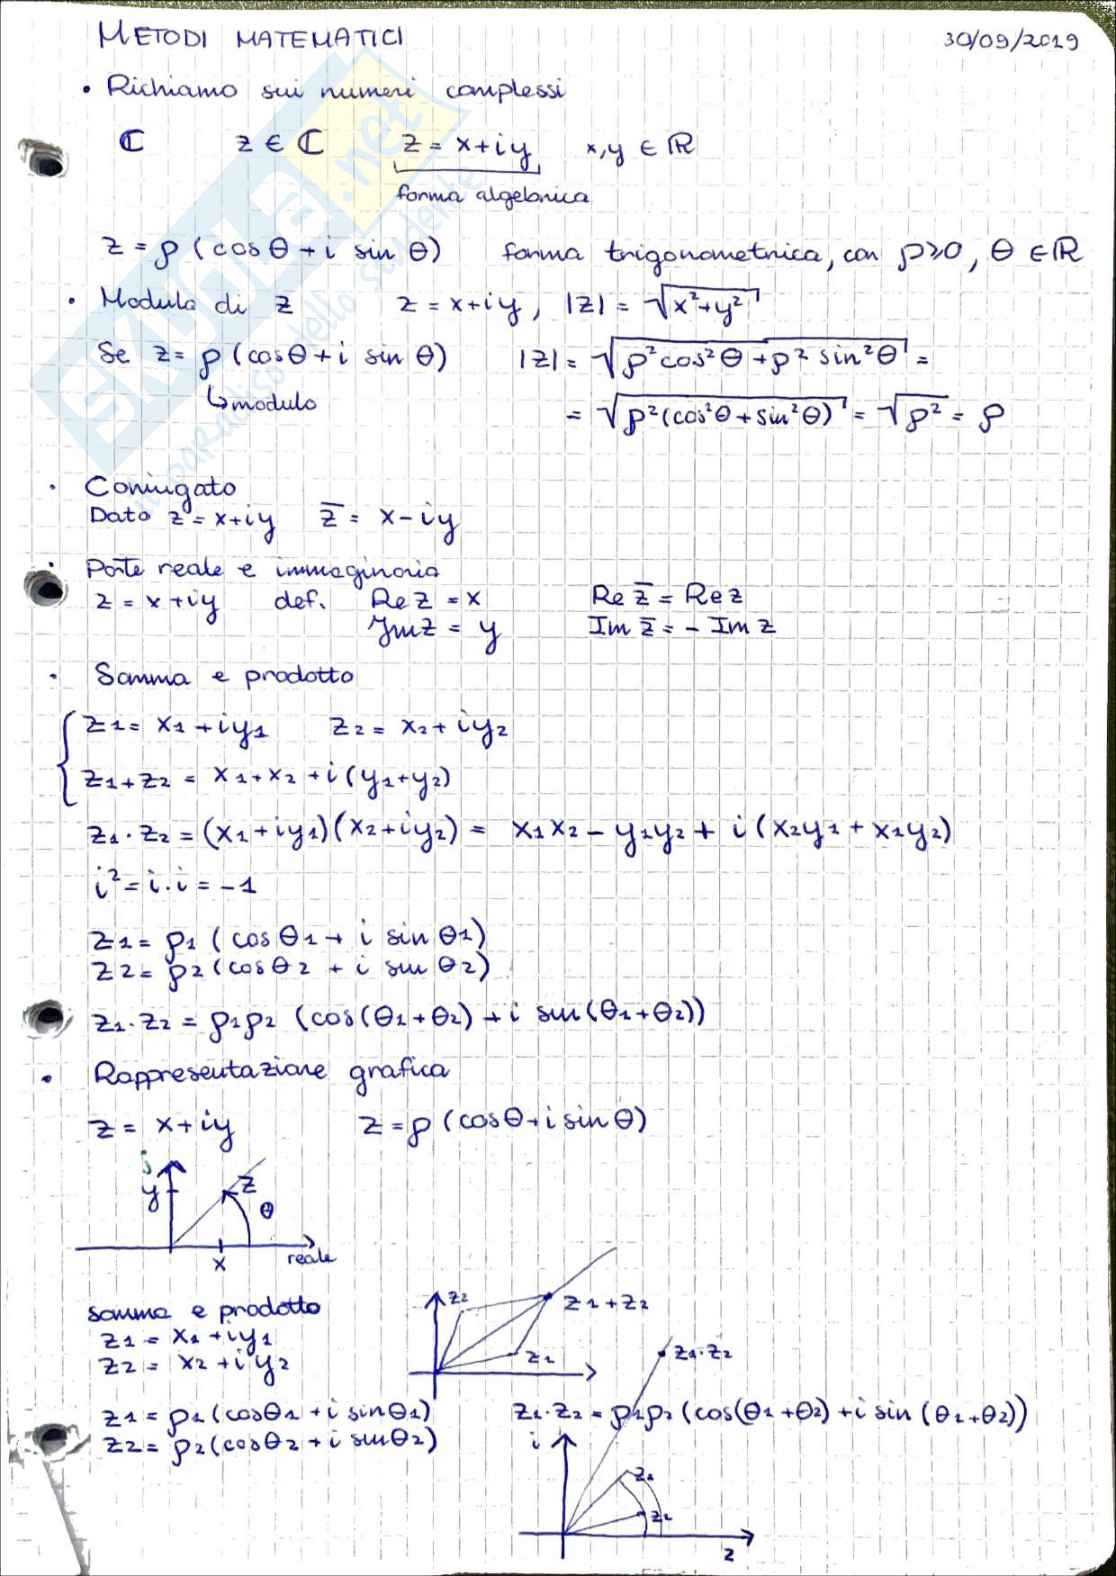 METODI MATEMATICI 30/09/2019
• Richiamo sui numeri complessi
ℂ z ∈ ℂ z = x+iy x,y ∈ ℝ
forma algebrica
z = ρ (cosθ + i sin θ) forma trigonometrica, con ρ≥0, θ ∈ ℝ
• Modulo di z z = x+iy, |z| = √(x²+y²)
Se z = ρ (cosθ + i sin θ) |z| = √(ρ² cos²θ + ρ² sin²θ) =
↳ modulo = √(ρ² (cos²θ + sin²θ)) = √ρ² = ρ
• Coniugato
Dato z = x+iy z̅ = x-iy
• Parte reale e immaginaria
z = x+iy def. Re z = x Re z̅ = Re z
Im z = y Im z̅ = - Im z
• Somma e prodotto
z1 = x1 + iy1 z2 = x2 + iy2
z1+z2 = x1+x2 + i(y1+y2)
z1·z2 = (x1+iy1)(x2+iy2) = x1x2 - y1y2 + i(x2y1 + x1y2)
i² = i·i = -1
z1 = ρ1 (cosθ1 + i sin θ1)
z2 = ρ2 (cosθ2 + i sin θ2)
z1·z2 = ρ1ρ2 (cos(θ1+θ2) + i sin(θ1+θ2))
• Rappresentazione grafica
z = x+iy z = ρ (cosθ + i sin θ)
i
y z θ
x reale
somma e prodotto
z1 = x1 + iy1
z2 = x2 + iy2
z2 z1+z2
z1
z1·z2
z1 = ρ1 (cosθ1 + i sinθ1) z1·z2 = ρ1ρ2 (cos(θ1+θ2) + i sin(θ1+θ2))
z2 = ρ2 (cosθ2 + i sinθ2)
i
z
SKUOLA.net
il paradiso dello studente